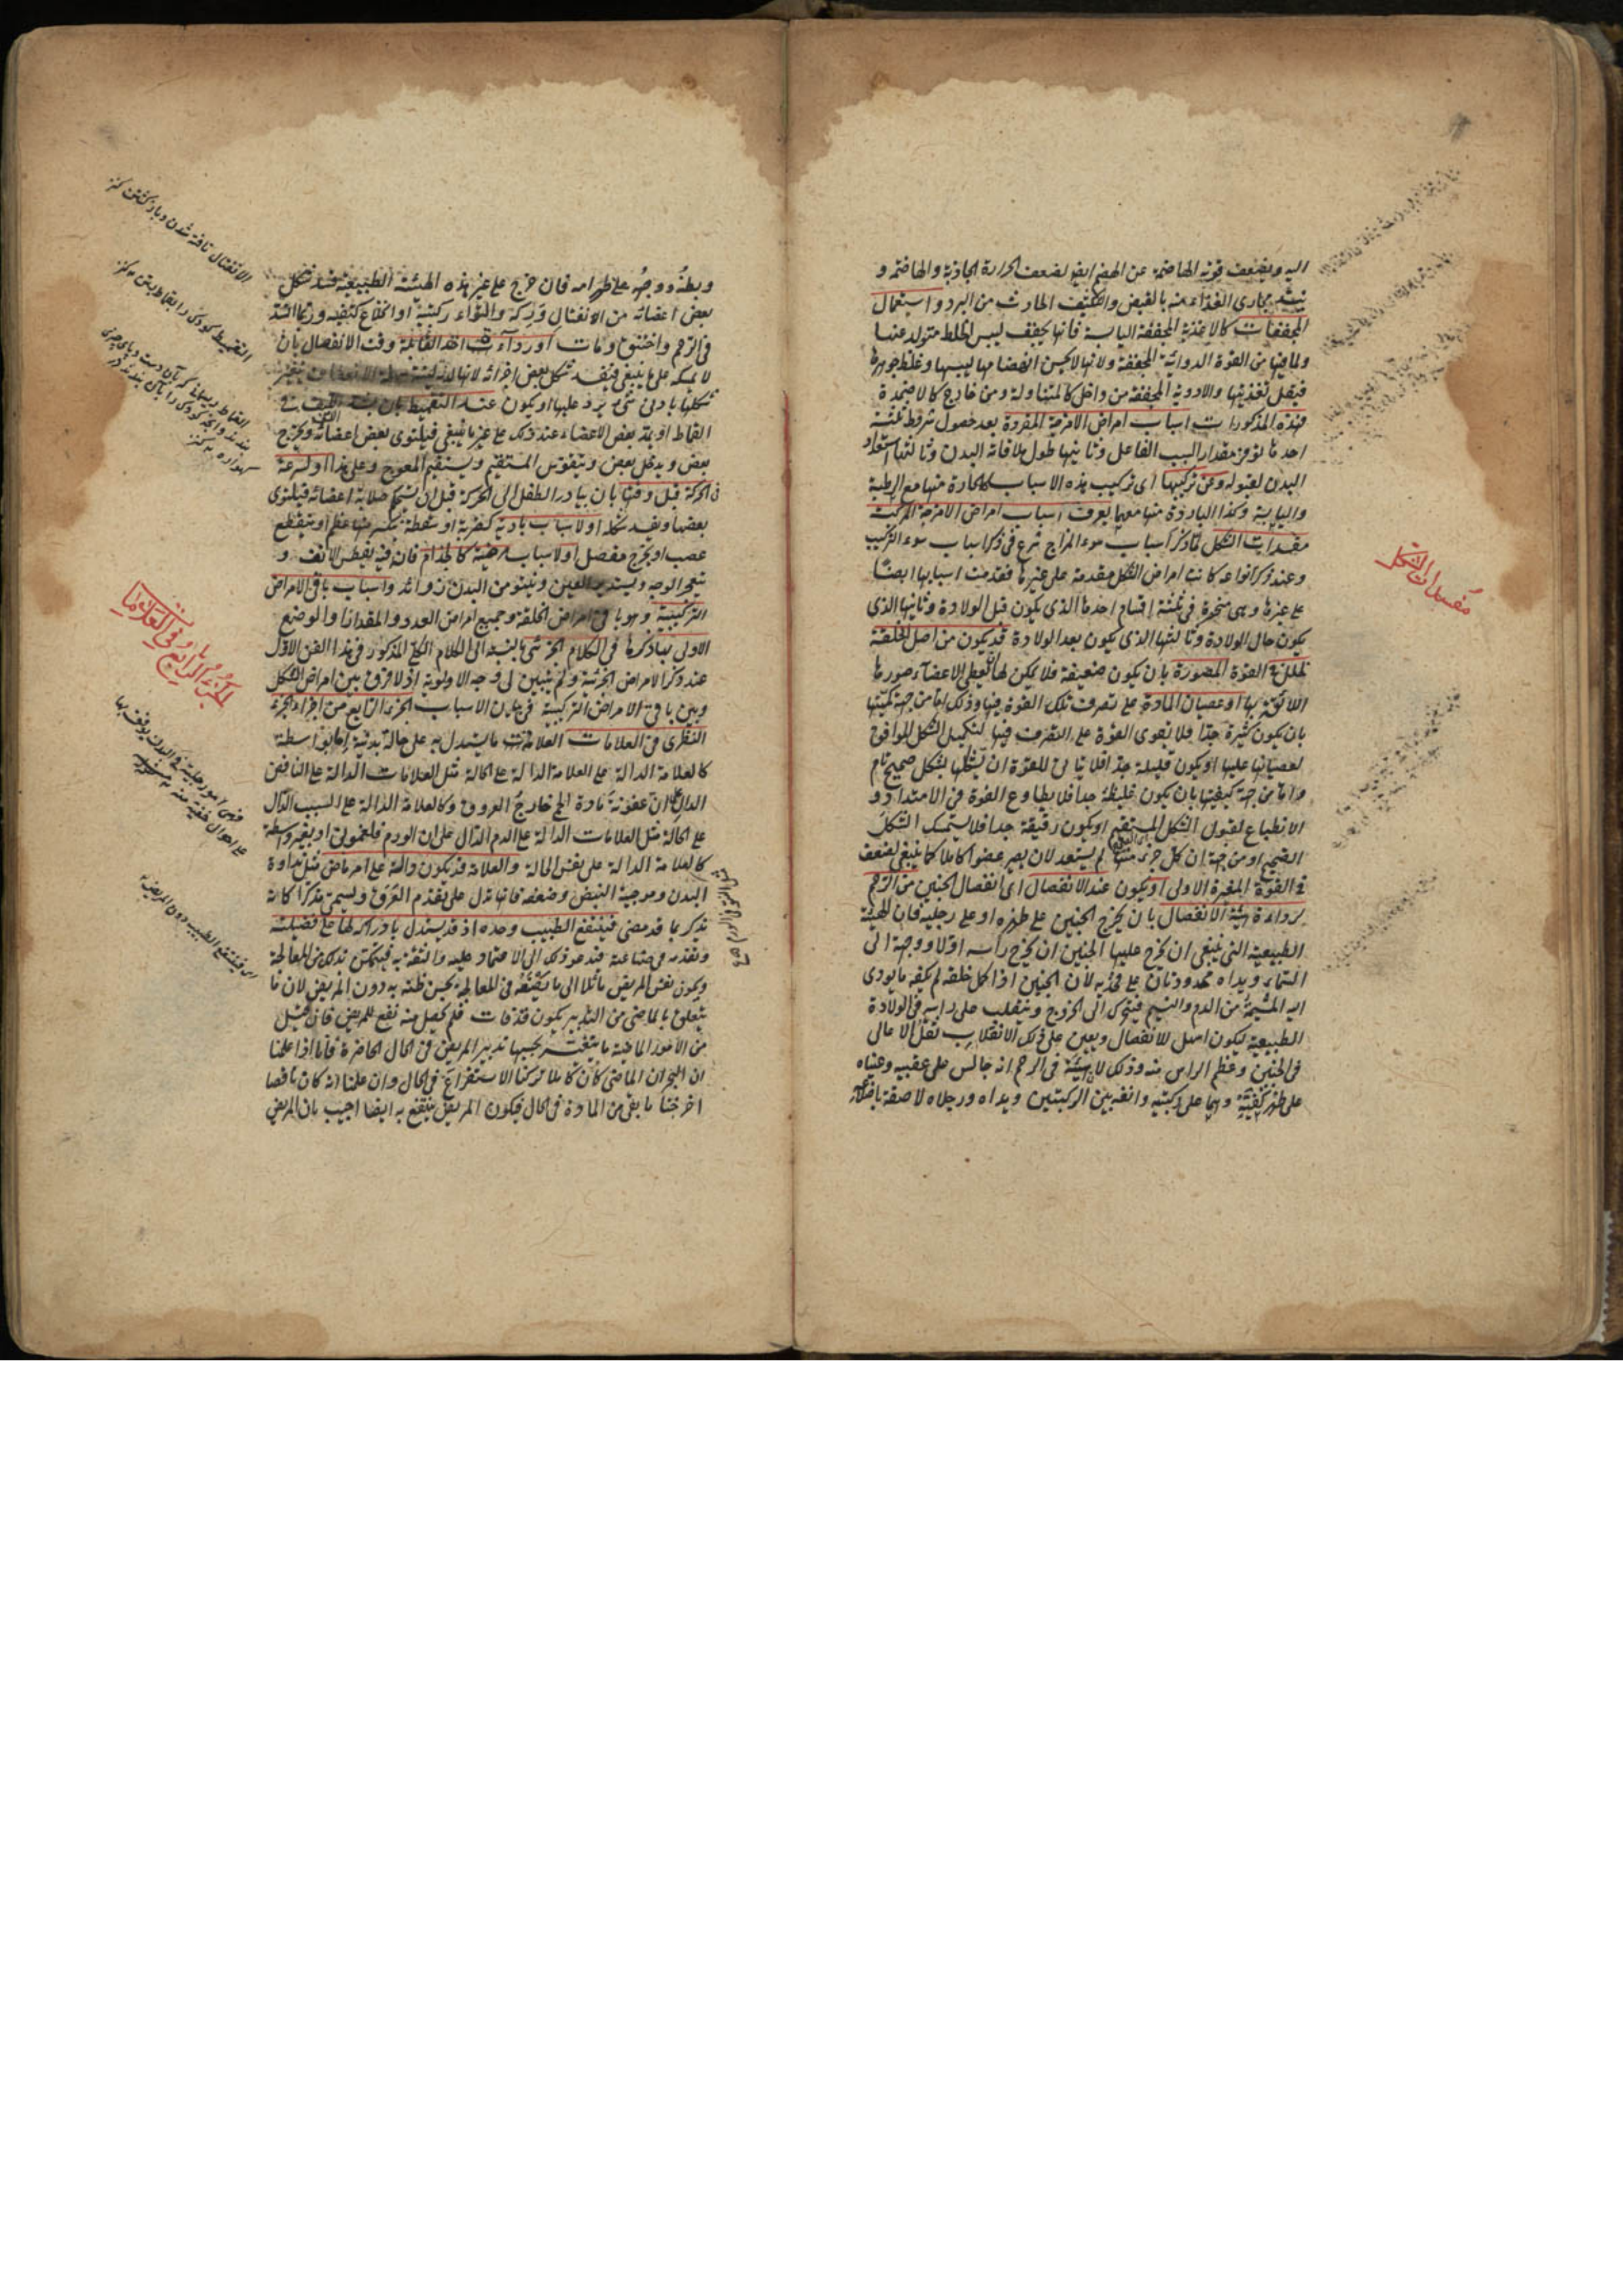 اليه ويضعف قوته الهاضمة عن الهضم ايضا لضعف الحرارة الجاذبة والهاضمة و
مجارى الغذاء منه بالقبض والتكثيف الحادث من البرد و استعمال
المجففات كالاغذية المجففة اليابسة فانها يجفف ليبس الخلط متولد عنها
ولما فيها من القوة الدوائية المجففة ولانها لا يحسن انهضامها ليبسها وغلظ جوهرها
فيقل تغذيتها والادوية المجففة من داخل كالمتناولة ومن خارج كالاضمدة
فهذه المذكورات اسباب امراض الامزجة المفردة بعد حصول شروط ثلثة
احدها توفر مقدار السبب الفاعل وثانيها طول ملاقاته البدن وثالثها استعداد
البدن لقبوله وعن تركيبها اى تركيب هذه الاسباب كالحادة منها مع الرطبة
واليابسة وكذا الباردة منها معهما يعرف اسباب امراض الامزجة المركبة
مفسدات الشكل لما ذكر اسباب سوء المزاج شرع فى ذكر اسباب سوء التركيب
وعند ذكر انواعه كانت امراض الشكل مقدمة على غيرها فقدمت اسبابها ايضا
على غيرها وهى منحصرة فى ثلثة اقسام احدها الذى يكون قبل الولادة وثانيها الذى
يكون حال الولادة وثالثها الذى يكون بعد الولادة قد يكون من اصل الخلقة
لخلل فى القوة المصورة بان يكون ضعيفة فلا يمكن لها ان يعطى الاعضاء صورها
اللائقة بها او عصيان المادة على تصرف تلك القوة فيها وذلك اما من جهة كميتها
بان يكون كثيرة جدا فلا تقوى القوة على التصرف فيها لتكميل الشكل الموافق
لعصيانها عليها او يكون قليلة جدا فلا يتاتى للقوة ان يشكلها بشكل صحيح تام
واما من جهة كيفيتها بان يكون غليظة جدا فلا يطاوع القوة فى الامتداد و
الانطباع لقبول الشكل المستقيم او يكون رقيقة جدا فلا يستمسك الشكل
الصحيح او من جهة ان كل جزء منها لم يستعد لان يصير عضوا كاملا كما ينبغى لضعف
فى القوة المغيرة الاولى او يكون عند الانفصال اى انفصال الجنين من الرحم
لرداءة هيئة الانفصال بان يخرج الجنين على ظهره او على رجليه فان الهيئة
الطبيعية التى ينبغى ان يخرج عليها الجنين ان يخرج رأسه اولا ووجهه الى
السماء ويداه ممدودتان على فخذيه لان الجنين اذا كمل خلقه لم يكفه ما يودى
اليه المشيمة من الدم والنسيم فيتحرك الى الخروج وينقلب على راسه فى الولادة
الطبيعية ليكون اسهل للانفصال ويعين على ذلك الانقلاب ثقل الاعالى
فى الجنين وعظم الراس منه وذلك لان هيئته فى الرحم انه جالس على عقبيه وعيناه
على ظهر كفيه وهما على ركبتيه وانفه بين الركبتين ويداه ورجلاه لاصقة باضلاعه
مفسدات الشكل
وبطنه ووجهه على ظهر امه فان خرج على غير هذه الهيئة الطبيعية فسد شكل
بعض اعضائه من الانفتال وركه والتواء ركبتيه او انخلاع كتفيه وربما انسد
فم الرحم واختنق ومات او رداءة اخذ القابلة وقت الانفصال بان
لا يمسكه على ما ينبغى فيفسد شكل بعض اجزائه لانها لدنة لينة
شكلها بادنى شىء يرد عليها او يكون عند التقميط بان يشد اللفيف فى
القماط او يمد بعض الاعضاء عند ذلك على غير ما ينبغى فيلتوى بعض اعضائه ويخرج
بعض ويدخل بعض ويتقوس المستقيم ويستقيم المعوج وعلى هذا او لسرعة
الحركة قبل وقتها بان يبادر الطفل الى الحركة قبل ان يستحكم صلابة اعضائه فيلتوى
بعضها ويفسد شكله او لاسباب بادية كضربة او سقطة يكسر منها عظم او ينقطع
عصب او يخرج مفصل او لاسباب مرضية كالجذام فان فيه يفطس الانف و
يتهيج الوجه ويستدير العين وينتؤ من البدن زوائد واسباب باقى الامراض
التركيبية وهو باقى امراض الخلقة وجميع امراض العدد والمقدار والوضع
الاولى بها ذكرها فى الكلام الجزئى بالنسبة الى الكلام الكلى المذكور فى هذا الفن الاول
عند ذكر الامراض الجزئية ولم يتبين لى وجه الاولوية اذ لا فرق بين امراض الشكل
وبين باقى الامراض التركيبية فى بيان الاسباب الجزء الرابع من اجزاء الجزء
النظرى فى العلامات العلامة ما يستدل به على حالة بدنية اما بواسطة
كالعلامة الدالة على العلامة الدالة على الحالة مثل العلامات الدالة على النافض
الدال على ان عفونة مادة الحمى خارج العروق وكالعلامة الدالة على السبب الدال
على الحالة مثل العلامات الدالة على الدم الدال على ان الورم فلغمونى او بغير واسطة
كالعلامة الدالة على نفس الحالة والعلامة قد يكون دالة على امر ماض مثل نداوة
البدن وموجية النبض وضعفه فانها تدل على تقدم العرق ويسمى مذكرا كانه
يذكر بما قد مضى فينتفع الطبيب وحده اذ قد يستدل بادراكه لها على فضيلته
وتقدمه فى صناعته فتدعو ذلك الى الاعتماد عليه والثقة به فيتمكن بذلك من المعالجة
ويكون نفس المريض مائلا الى ما يقتضيه فى المعالجة بحسن ظنه به دون المريض لان ما
يتعلق بالماضى من التدبير يكون قد فات فلم يحصل منه نفع للمريض فان قيل
من الامور الماضية ما يتغير بحسبها تدبير المريض فى الحال الحاضرة فانا اذا علمنا
ان البحران الماضى كان كاملا تركنا الاستفراغ فى الحال وان علمنا انه كان ناقصا
اخرجنا ما بقى من المادة فى الحال فيكون المريض ينتفع به ايضا اجيب بان المريض
الانفتال تافته شدن وباز گشتن كنز
التقميط كودك را بقماط بستن كنز
القماط ريسمانى كه بآن دست وپاى چيزى
بندند وآنچه كودك را بآن بندند در
گهواره كنز
الجزء الرابع فى العلامات
فهى امور جلية فى البدن يوقف بها
على احوال خفية منه
اى فينتفع الطبيب دون المريض